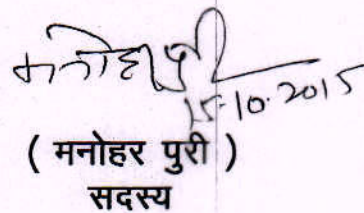 मनोहर पुरी
15-10-2015
( मनोहर पुरी )
सदस्य